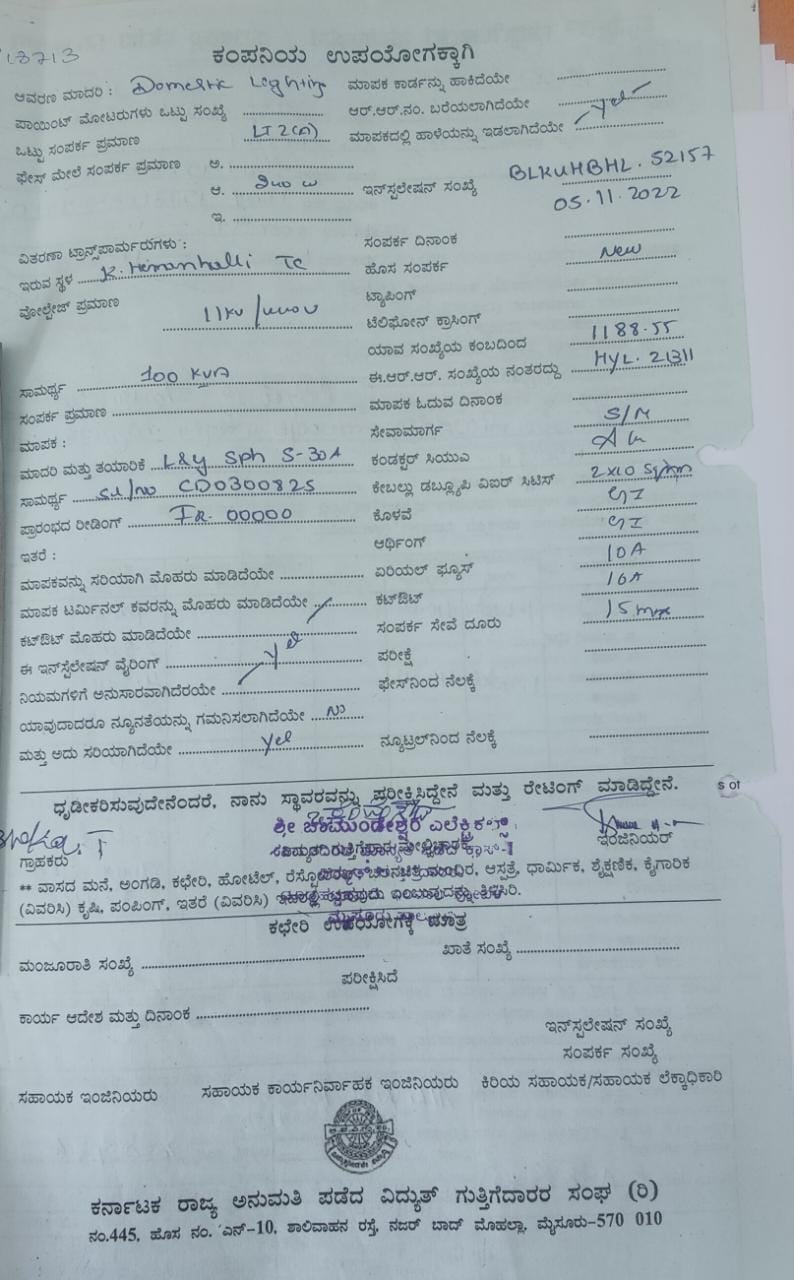 13713
ಕಂಪನಿಯ ಉಪಯೋಗಕ್ಕಾಗಿ
ಆವರಣ ಮಾದರಿ : Domestic Lighting ಮಾಪಕ ಕಾರ್ಡನ್ನು ಹಾಕಿದೆಯೇ
ಪಾಯಿಂಟ್ ಮೋಟರುಗಳು ಒಟ್ಟು ಸಂಖ್ಯೆ ಆರ್.ಆರ್.ನಂ. ಬರೆಯಲಾಗಿದೆಯೇ
ಒಟ್ಟು ಸಂಪರ್ಕ ಪ್ರಮಾಣ LT 2(a) ಮಾಪಕದಲ್ಲಿ ಹಾಳೆಯನ್ನು ಇಡಲಾಗಿದೆಯೇ Yes
ಫೇಸ್ ಮೇಲೆ ಸಂಪರ್ಕ ಪ್ರಮಾಣ ಅ.
ಆ. ಇನ್‌ಸ್ಪಲೇಷನ್ ಸಂಖ್ಯೆ BLKUHBHL. 52157
ಇ. 05.11.2022
ವಿತರಣಾ ಟ್ರಾನ್ಸ್‌ಪಾರ್ಮರುಗಳು : ಸಂಪರ್ಕ ದಿನಾಂಕ
ಇರುವ ಸ್ಥಳ K. Hemanhalli TC ಹೊಸ ಸಂಪರ್ಕ New
ವೋಲ್ಟೇಜ್ ಪ್ರಮಾಣ 11KV / ಟ್ಯಾಪಿಂಗ್
ಟೆಲಿಫೋನ್ ಕ್ರಾಸಿಂಗ್
ಯಾವ ಸಂಖ್ಯೆಯ ಕಂಬದಿಂದ 1188.55
ಸಾಮರ್ಥ್ಯ 100 KVA ಈ.ಆರ್.ಆರ್. ಸಂಖ್ಯೆಯ ನಂತರದ್ದು HYL. 21311
ಸಂಪರ್ಕ ಪ್ರಮಾಣ ಮಾಪಕ ಓದುವ ದಿನಾಂಕ
ಮಾಪಕ : ಸೇವಾಮಾರ್ಗ S/M
ಮಾದರಿ ಮತ್ತು ತಯಾರಿಕೆ L&Y Sph 5-30A ಕಂಡಕ್ಟರ್ ಸಿಯುವಿ
ಸಾಮರ್ಥ್ಯ Sl/no CD0300825 ಕೇಬಲ್ಲು ಡಬ್ಲ್ಯೂಪಿ ವಿಐರ್ ಸಿಟಿಸ್ 2x10 Sqmm
ಪ್ರಾರಂಭದ ರೀಡಿಂಗ್ IR. 00000 ಕೊಳವೆ GI
ಇತರೆ : ಆರ್ಥಿಂಗ್ GI
ಮಾಪಕವನ್ನು ಸರಿಯಾಗಿ ಮೊಹರು ಮಾಡಿದೆಯೇ ಏರಿಯಲ್ ಫ್ಯೂಸ್ 10A
ಮಾಪಕ ಟರ್ಮಿನಲ್ ಕವರನ್ನು ಮೊಹರು ಮಾಡಿದೆಯೇ ಕಟ್‌ಔಟ್ 16A
ಕಟ್‌ಔಟ್ ಮೊಹರು ಮಾಡಿದೆಯೇ ಸಂಪರ್ಕ ಸೇವೆ ದೂರು
ಈ ಇನ್‌ಸ್ಟೆಲೇಷನ್ ವೈರಿಂಗ್ Yes ಪರೀಕ್ಷೆ
ನಿಯಮಗಳಿಗೆ ಅನುಸಾರವಾಗಿದೆರಯೇ ಫೇಸ್‌ನಿಂದ ನೆಲಕ್ಕೆ
ಯಾವುದಾದರೂ ನ್ಯೂನತೆಯನ್ನು ಗಮನಿಸಲಾಗಿದೆಯೇ No
ಮತ್ತು ಅದು ಸರಿಯಾಗಿದೆಯೇ Yes ನ್ಯೂಟ್ರಲ್‌ನಿಂದ ನೆಲಕ್ಕೆ
ಧೃಡೀಕರಿಸುವುದೇನೆಂದರೆ, ನಾನು ಸ್ಥಾವರವನ್ನು ಪರೀಕ್ಷಿಸಿದ್ದೇನೆ ಮತ್ತು ರೇಟಿಂಗ್ ಮಾಡಿದ್ದೇನೆ.
s of
ಶ್ರೀ ಚಾಮುಂಡೇಶ್ವರಿ ಎಲೆಕ್ಟ್ರಿಕಲ್ಸ್
ಗ್ರಾಹಕರು ಇಂಜಿನಿಯರ್
** ವಾಸದ ಮನೆ, ಅಂಗಡಿ, ಕಛೇರಿ, ಹೋಟೆಲ್, ಆಸ್ಪತ್ರೆ, ಧಾರ್ಮಿಕ, ಶೈಕ್ಷಣಿಕ, ಕೈಗಾರಿಕ
(ವಿವರಿಸಿ) ಕೃಷಿ, ಪಂಪಿಂಗ್, ಇತರೆ (ವಿವರಿಸಿ)
ಕಛೇರಿ ಉಪಯೋಗಕ್ಕೆ ಮಾತ್ರ
ಮಂಜೂರಾತಿ ಸಂಖ್ಯೆ ಖಾತೆ ಸಂಖ್ಯೆ
ಪರೀಕ್ಷಿಸಿದೆ
ಕಾರ್ಯ ಆದೇಶ ಮತ್ತು ದಿನಾಂಕ
ಇನ್‌ಸ್ಪಲೇಷನ್ ಸಂಖ್ಯೆ
ಸಂಪರ್ಕ ಸಂಖ್ಯೆ
ಸಹಾಯಕ ಇಂಜಿನಿಯರು ಸಹಾಯಕ ಕಾರ್ಯನಿರ್ವಾಹಕ ಇಂಜಿನಿಯರು ಕಿರಿಯ ಸಹಾಯಕ/ಸಹಾಯಕ ಲೆಕ್ಕಾಧಿಕಾರಿ
ಕರ್ನಾಟಕ ರಾಜ್ಯ ಅನುಮತಿ ಪಡೆದ ವಿದ್ಯುತ್ ಗುತ್ತಿಗೆದಾರರ ಸಂಘ (ರಿ)
ನಂ.445, ಹೊಸ ನಂ. ಎನ್-10, ಶಾಲಿವಾಹನ ರಸ್ತೆ, ನಜರ್ ಬಾದ್ ಮೊಹಲ್ಲಾ, ಮೈಸೂರು-570 010